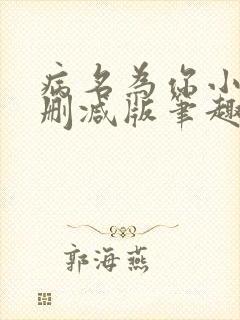 病名为你小
删减版笔趣
郭海燕